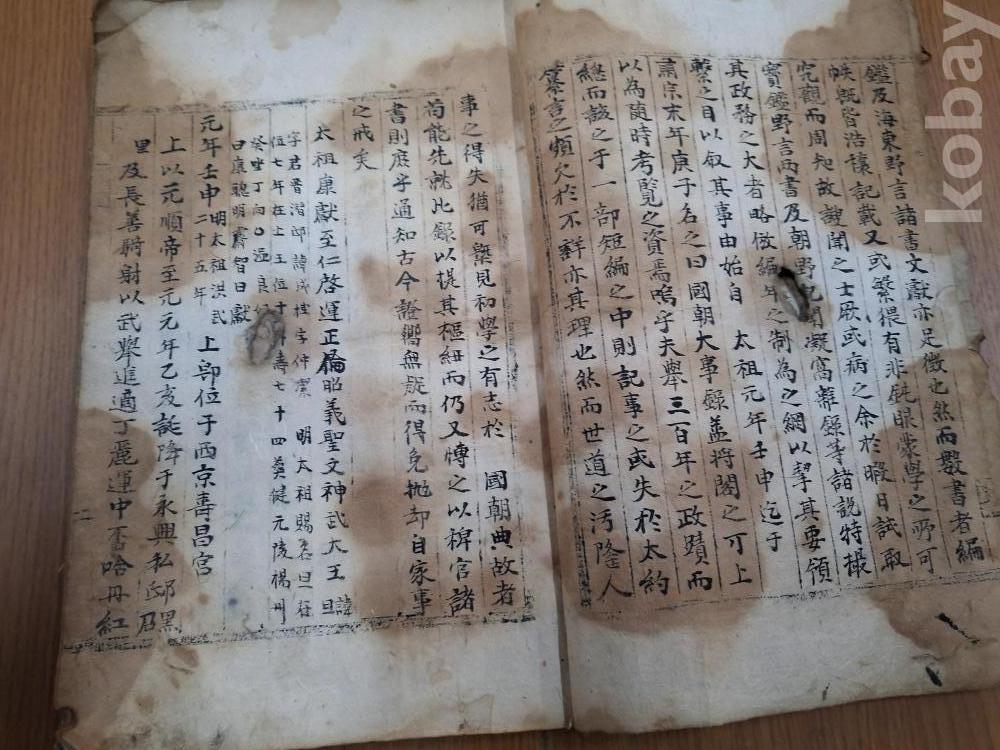 鑑及海東野言諸書文獻亦足徵也然而數書者編
帙槪皆浩穰記載又或繁猥有非鈍眼蒙學之所可
究觀而周知故謏聞之士厥或病之余於暇日試取
寶鑑野言兩書及朝野記聞凝窩雜錄等諸說特撮
其政務之大者略倣編年之制爲之綱以挈其要領
繫之目以叙其事由始自 太祖元年壬申迄于
肅宗末年庚子名之曰國朝大事錄蓋將閣之可上
以爲隨時考覽之資焉嗚乎夫擧三百年之政蹟而
總而該之于一部短編之中則記事之或失於太約
纂言之頗欠於不詳亦其理也然而世道之汚隆人
事之得失猶可槩見初學之有志於 國朝典故者
苟能先就此錄以提其樞紐而仍又博之以稗官諸
書則庶乎通知古今證嚮無疑而得免抛却自家事
之戒矣
太祖康獻至仁啓運正倫昭義聖文神武大王諱旦
字君晋潛邸諱成桂字仲潔 明太祖賜
位七年在上王位十 壽七十四葬健元陵楊州
癸坐丁向 溫良
曰康聰明睿智曰獻
元年壬申明太祖洪武二十五年 上卽位于西京壽昌宮
上以元順帝至元元年乙亥誕降于永興私邸黑
里及長善騎射以武擧進適丁麗運中否哈丹紅
二
kobay